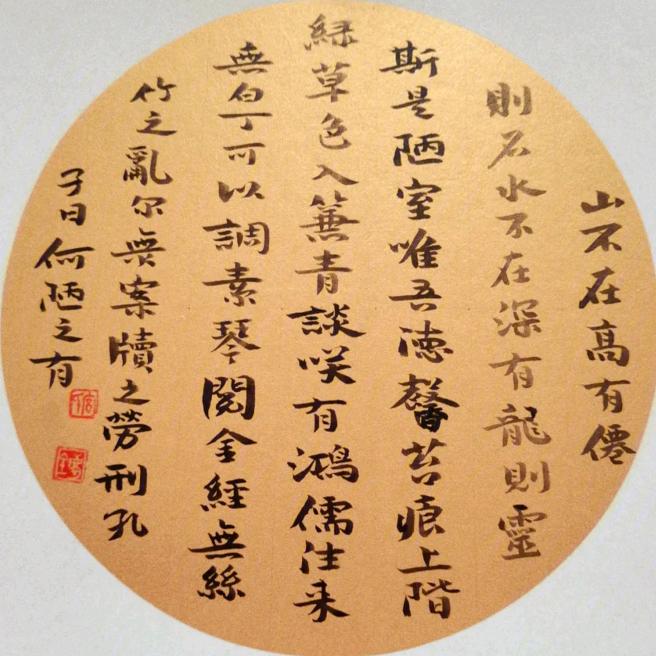 山不在高有僊
則名水不在深有龍則靈
斯是陋室唯吾德馨苔痕上階
緑草色入簾青談咲有鴻儒往来
無白丁可以調素琴閱金經無絲
竹之亂尔無案牘之勞刑孔
子曰何陋之有